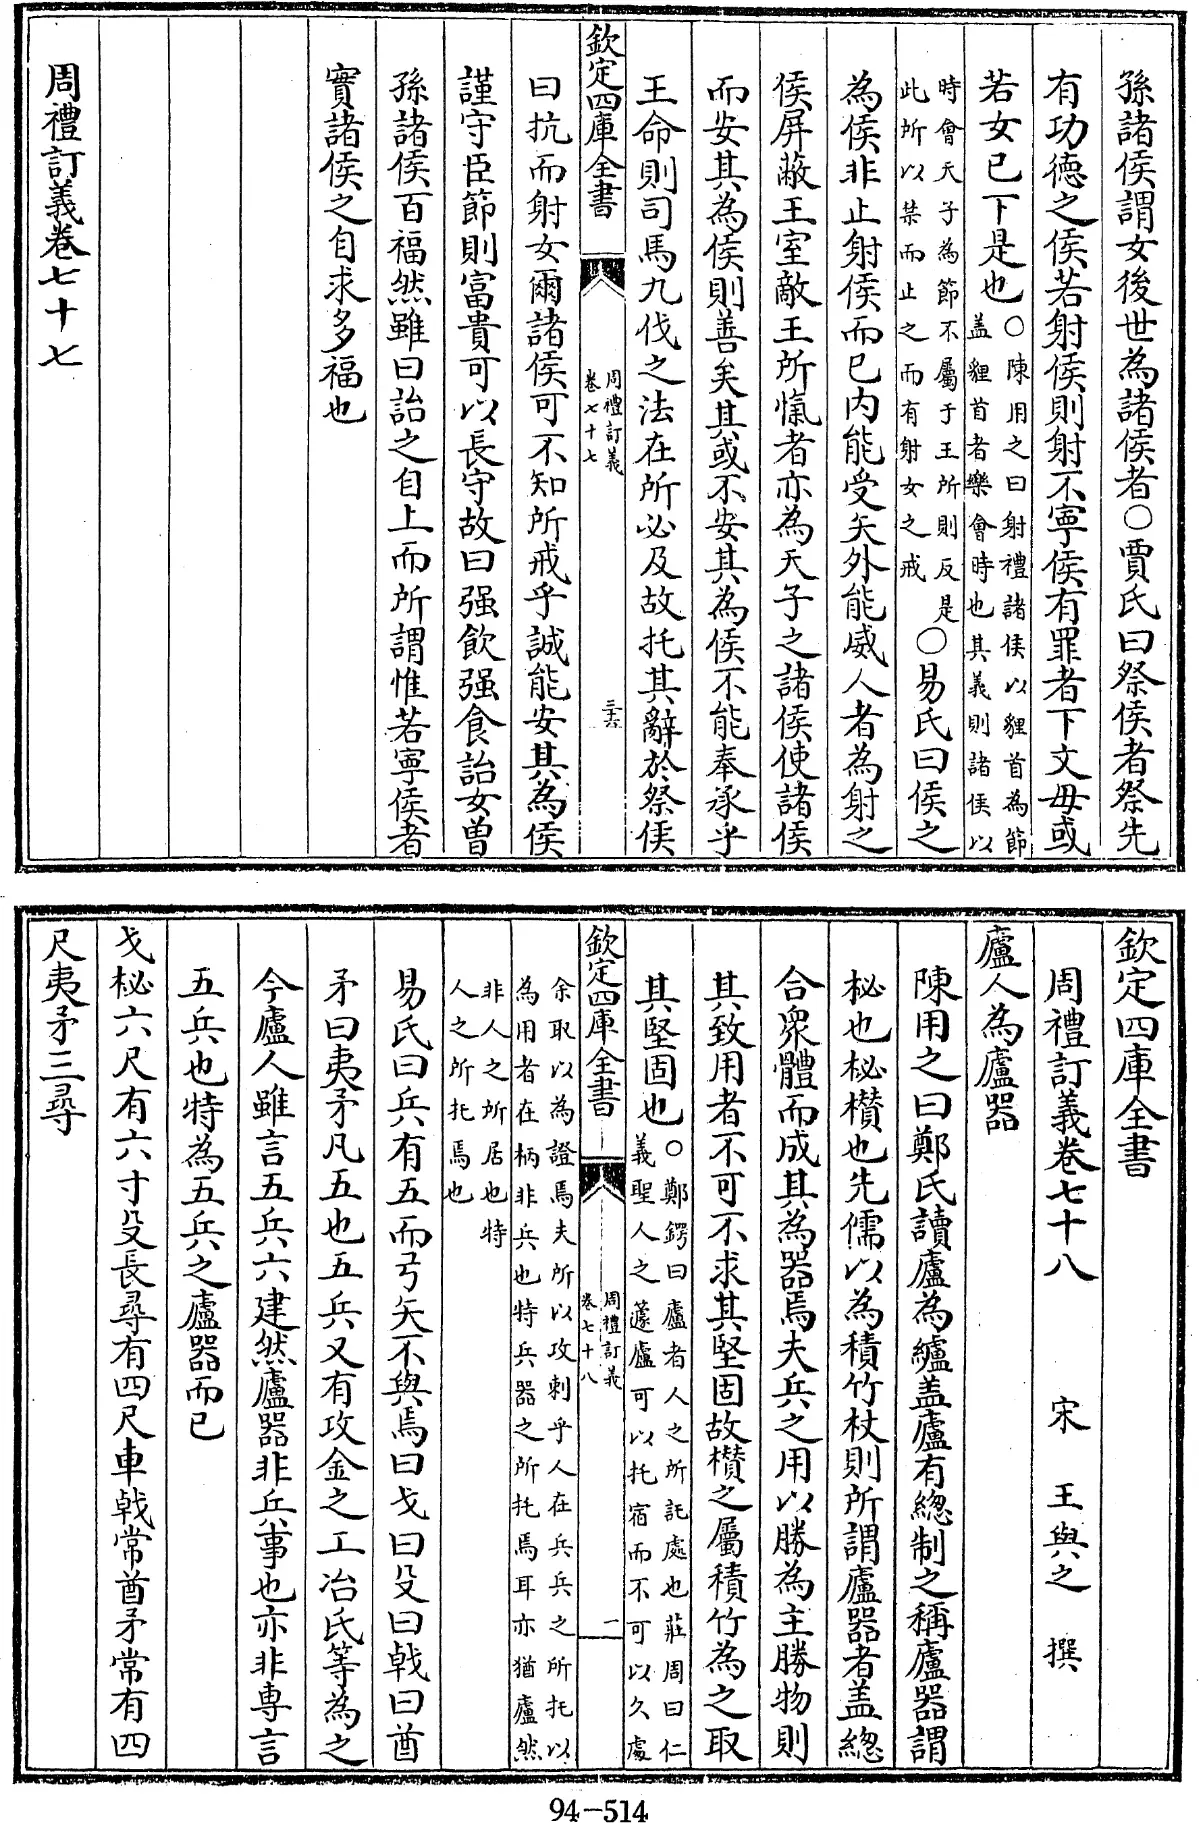 孫諸侯謂女後世為諸侯者○賈氏曰祭侯者祭先
有功德之侯若射侯則射不寧侯有罪者下文毋或
若女已下是也○陳用之曰射禮諸侯以貍首為節
盖貍首者樂會時也其義則諸侯以
時會天子為節不屬于王所則反是
此所以禁而止之而有射女之戒
○易氏曰侯之
為侯非止射侯而已内能受矢外能威人者為射之
侯屏蔽王室敵王所愾者亦為天子之諸侯使諸侯
而安其為侯則善矣其或不安其為侯不能奉承乎
王命則司馬九伐之法在所必及故托其辭於祭侯
欽定四庫全書
周禮訂義
卷七十七
三六
曰抗而射女爾諸侯可不知所戒乎誠能安其為侯
謹守臣節則富貴可以長守故曰强飲强食詒女曾
孫諸侯百福然雖曰詒之自上而所謂惟若寧侯者
實諸侯之自求多福也
周禮訂義卷七十七
欽定四庫全書
周禮訂義卷七十八 宋 王與之 撰
廬人為廬器
陳用之曰鄭氏讀廬為纑盖廬有總制之稱廬器謂
柲也柲欑也先儒以為積竹杖則所謂廬器者盖總
合衆體而成其為器焉夫兵之用以勝為主勝物則
其致用者不可不求其堅固故欑之屬積竹為之取
其堅固也○鄭鍔曰廬者人之所託處也莊周曰仁
義聖人之蘧廬可以托宿而不可以久處
欽定四庫全書
周禮訂義
卷七十八
一
余取以為證焉夫所以攻刺乎人在兵兵之所托以
為用者在柄非兵也特兵器之所托焉耳亦猶廬然
非人之所居也特
人之所托焉也
易氏曰兵有五而弓矢不與焉曰戈曰殳曰戟曰酋
矛曰夷矛凡五也五兵又有攻金之工冶氏等為之
今廬人雖言五兵六建然廬器非兵事也亦非専言
五兵也特為五兵之廬器而已
戈柲六尺有六寸殳長尋有四尺車戟常酋矛常有四
尺夷矛三尋
94-514